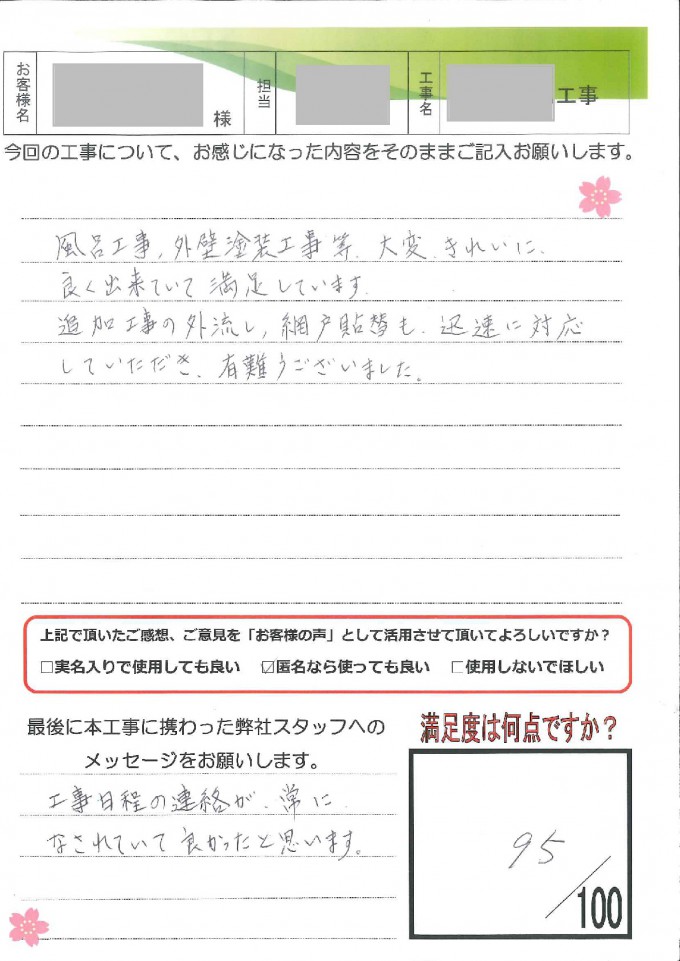 お客様名
様
担当
工事名
工事
今回の工事について、お感じになった内容をそのままご記入お願いします。
風呂工事,外壁塗装工事等、大変、きれいに、
良く出来ていて満足しています。
追加工事の外流し,網戸貼替も、迅速に対応
していただき、有難うございました。
上記で頂いたご感想、ご意見を「お客様の声」として活用させて頂いてよろしいですか？
□実名入りで使用しても良い ☑匿名なら使っても良い □使用しないでほしい
最後に本工事に携わった弊社スタッフへの
メッセージをお願いします。
工事日程の連絡が、常に、
なされていて良かったと思います。
満足度は何点ですか？
95/100